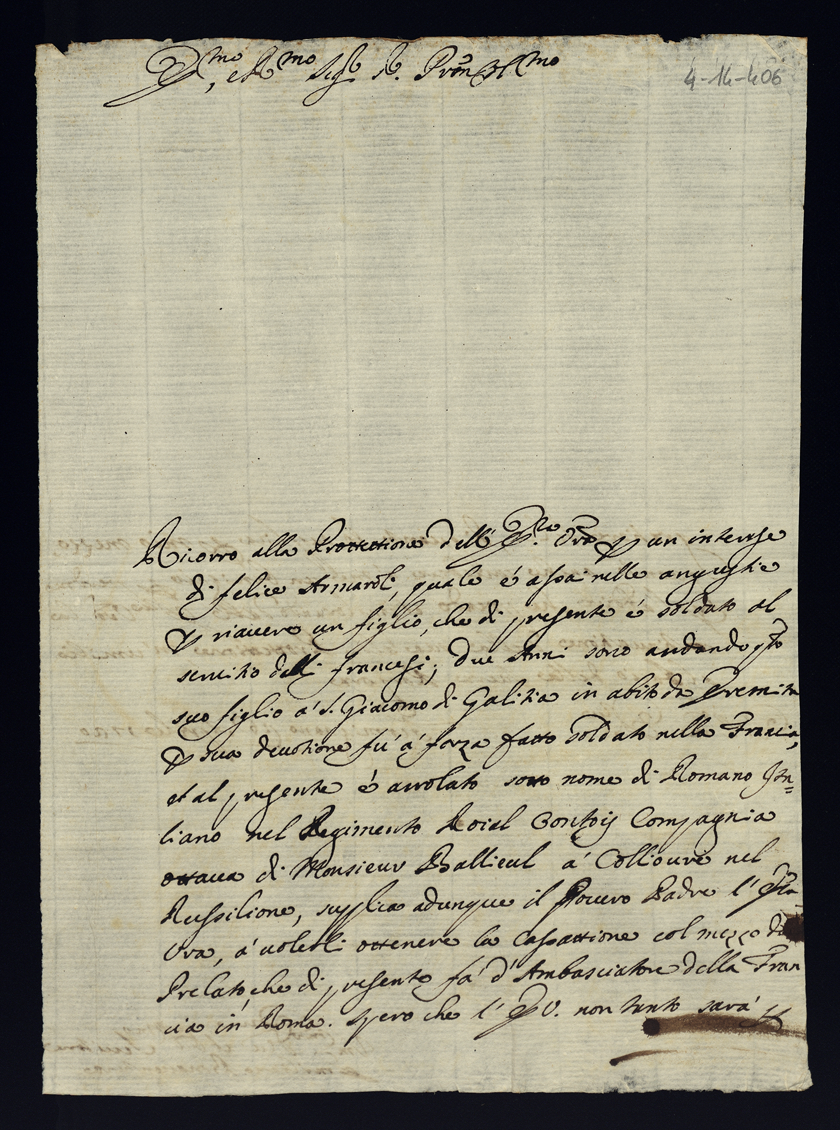 Ill.mo, e R.mo Sig.r P.ron Col.mo
4-14-406
Ricorro alla Protettione dell'Ill.ma Vra p un interesse
di felice Armaroli, quale è assai nelle angustie
p riavere un figlio, che di presente è soldato al
servitio delli francesi; due Anni sono andando qto
suo figlio à S. Giacomo di Galitia in abito da Eremita
p sua devotione fù à forza fatto soldato nella Francia,
et al presente è arrolato sotto nome di Romano Ita=
liano nel Regimento Roial Contois Compagnia
ottava di Monsieur Ballieul à Colliouri nel
Russilione, supplica adunque il Povero Padre l'Ill.ma
Vra, à volerli ottenere la Cassattione col mezzo di
Prelato, che di presente fà d'Ambasciatore della Fran
cia in Roma. Spero che l' V. non tanto sarà p